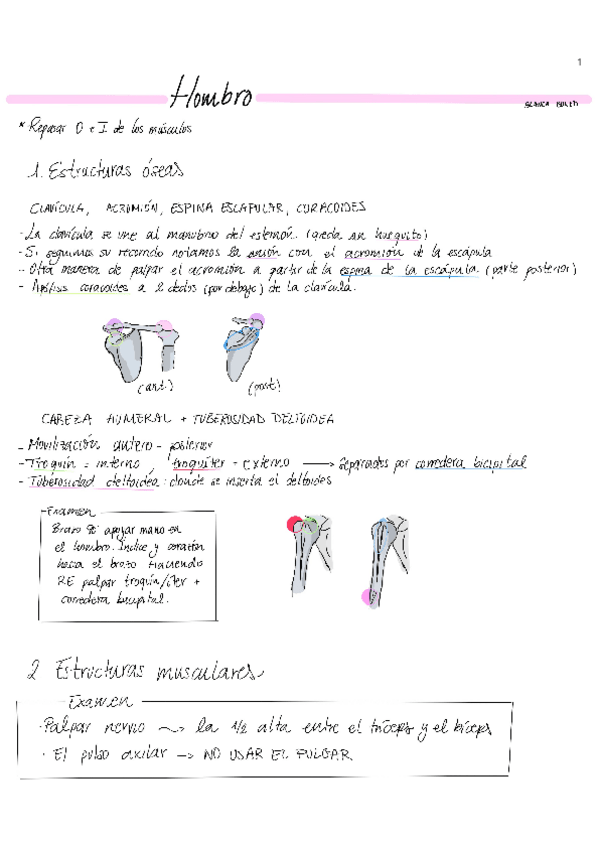 1
Hombro
* Repasar O e I de los músculos
1. Estructuras óseas
CLAVÍCULA, ACROMIÓN, ESPINA ESCAPULAR, CORACOIDES
- La clavícula se une al manubrio del esternón. (queda un huequito)
- Si seguimos su recorrido notamos la unión con el acromión de la escápula
- Otra manera de palpar el acromión a partir de la espina de la escápula. (parte posterior)
- Apófisis coracoides a 2 dedos (por debajo) de la clavícula.
(ant.) (post)
CABEZA HUMERAL + TUBEROSIDAD DELTOIDEA
- Movilización antero - posterior
- Troquín = interno, troquíter = externo → separados por corredera bicipital
- Tuberosidad deltoidea: donde se inserta el deltoides
Examen
Brazo apoyar mano en
el hombro. Índice y corazón
hacia el brazo Haciendo
RE palpar troquín/íter +
corredera bicipital.
2 Estructuras musculares
Examen
· Palpar nervio → la 1/2 alta entre el tríceps y el bíceps
· El pulso axilar → NO USAR EL PULGAR